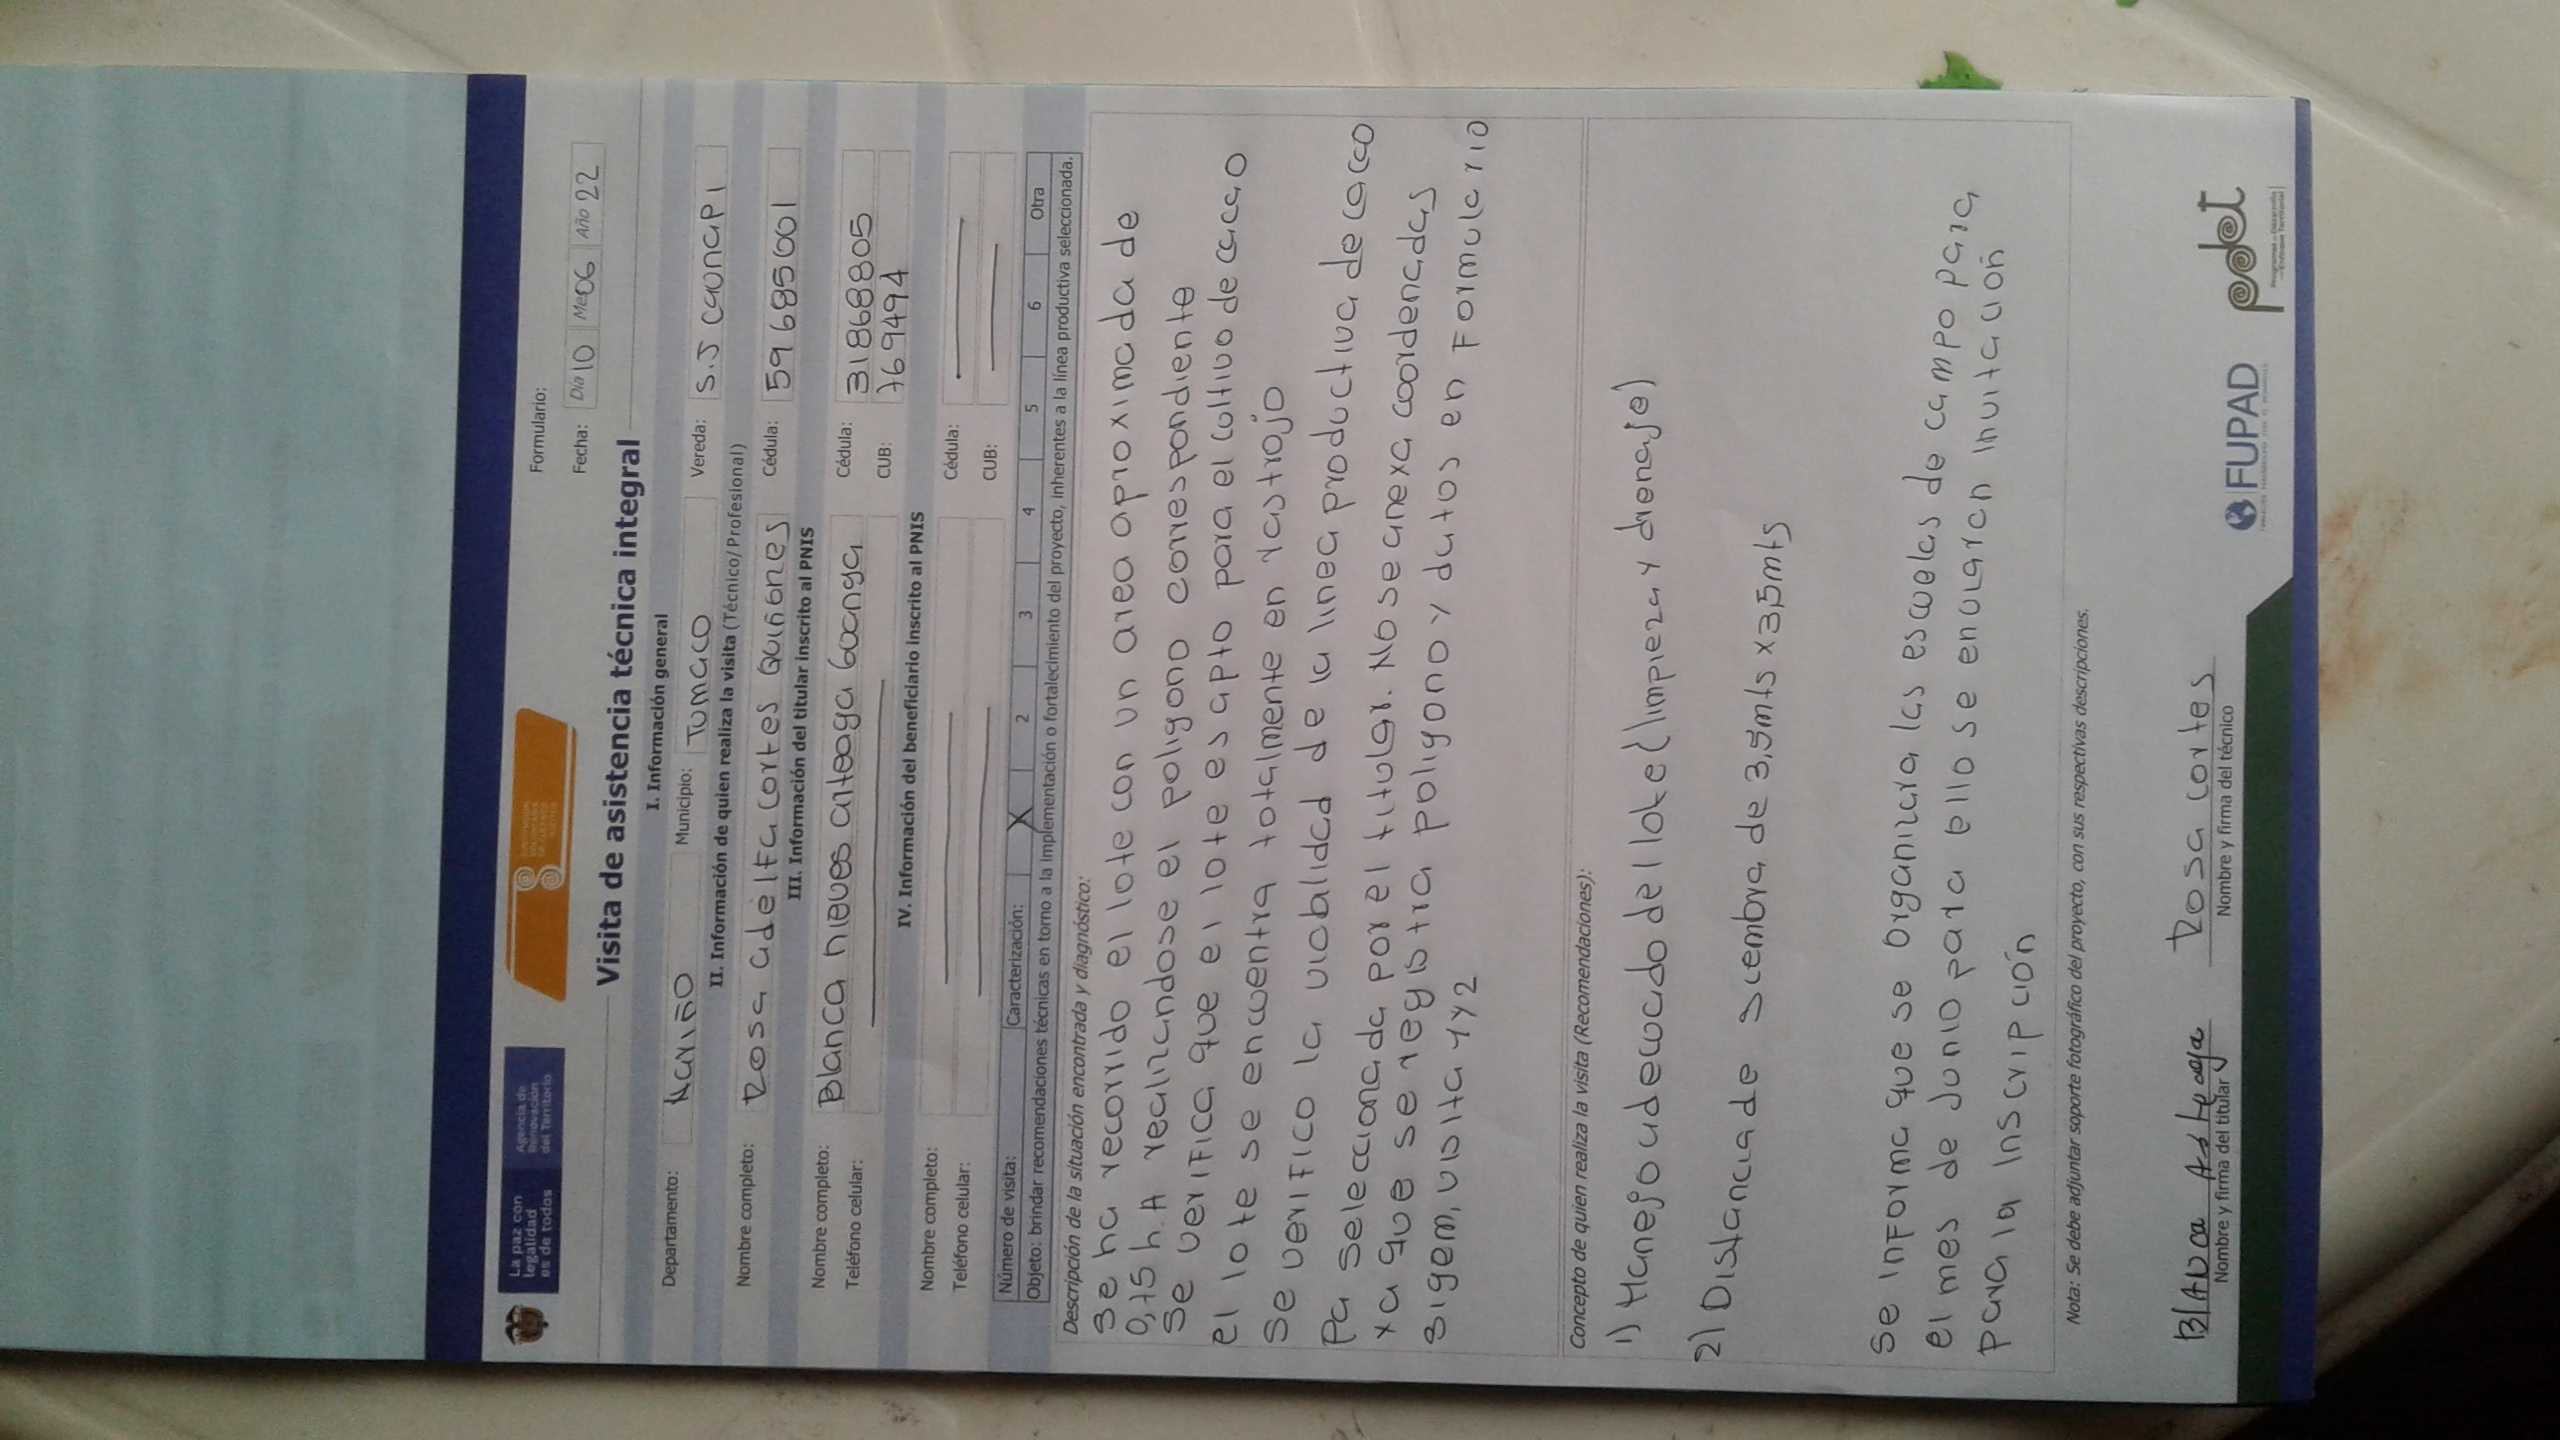 La paz con
legalidad
es de todos
Agencia de
Renovación
del Territorio
Formulario:
Fecha: Día 10 Mes 06 Año 22
Visita de asistencia técnica integral
I. Información general
Departamento: Nariño Municipio: Tumaco Vereda: S.J Caunapi
II. Información de quien realiza la visita (Técnico/Profesional)
Nombre completo: Rosa adelfa cortes Quiñones Cédula: 59685001
III. Información del titular inscrito al PNIS
Nombre completo: Blanca nieves arteaga Cédula: 318688805
Teléfono celular: CUB: 769494
IV. Información del beneficiario inscrito al PNIS
Nombre completo: Cédula:
Teléfono celular: CUB:
Número de visita: Caracterización: X 2 3 4 5 6 Otra
Objeto: brindar recomendaciones técnicas en torno a la implementación o fortalecimiento del proyecto, inherentes a la línea productiva seleccionada.
Descripción de la situación encontrada y diagnóstico:
Se ha recorrido el lote con un area aproximada de
0,75 h.A realizandose el poligono correspondiente
Se verifica que el lote es apto para el cultivo de cacao
el lote se encuentra totalmente en rastrojo
Se verifico la viabalidad de la linea productiva de cacao
Pa seleccionada por el titular. No se anexa coordenadas
xa que se registra poligono y datos en Formulario
sigem, visita 1 y 2
Concepto de quien realiza la visita (Recomendaciones):
1) Manejo adecuado del lote (limpieza y drenaje)
2) Distancia de siembra de 3,5mts x 3,5mts
Se informa que se organizara las escuelas de campo para
el mes de Junio para ello se enviaran invitación
para la inscripción
Nota: Se debe adjuntar soporte fotográfico del proyecto, con sus respectivas descripciones.
BlANca Arteaga Rosa cortes
Nombre y firma del titular Nombre y firma del técnico
FUPAD pdet